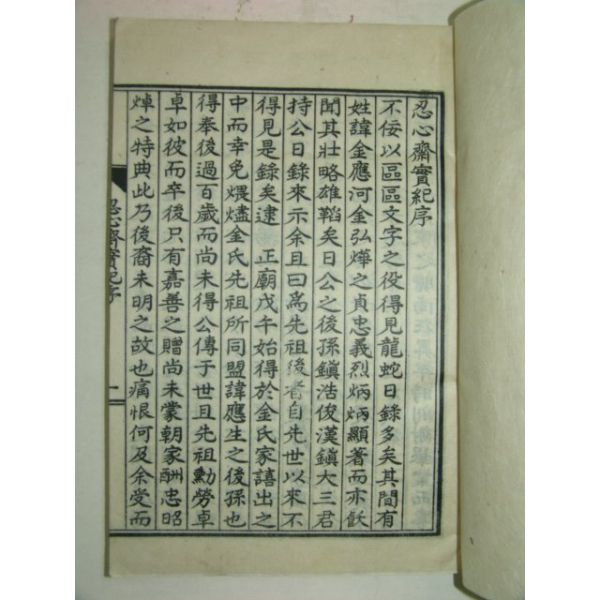 忍心齋實紀序
不佞以區區文字之役得見龍蛇日錄多矣其間有
姓諱金應河金弘燁之貞忠義烈炳炳顯著而亦飫
聞其壯略雄韜矣日公之後孫鎭浩俊漢鎭大三君
持公日錄來示余且曰爲先祖後者自先世以來不
得見是錄矣逮 正廟戊午始得於金氏家譆出之
中而幸免煨燼金氏先祖所同盟諱應生之後孫也
得奉後過百歲而尚未得公傳于世且先祖勳勞卓
卓如彼而卒後只有嘉善之贈尚未蒙朝家酬忠昭
焯之特典此乃後裔未明之故也痛恨何及余受而
忍心齋實紀序
一